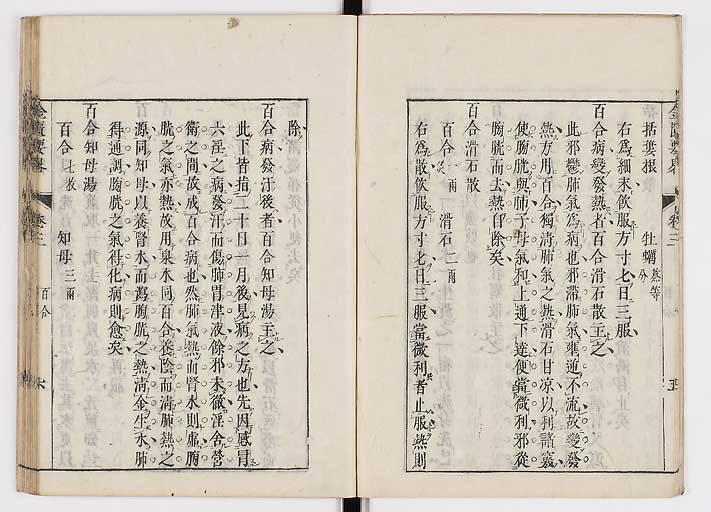 括蔞根　牡蠣 熬等分
右爲細末飲服方寸匕日三服
百合病變發熱者百合滑石散主之
此邪鬱肺氣爲病也邪滯肺氣壅逆不流故變發
熱方用百合獨淸肺氣之熱滑石甘凉以利諸竅
使膀胱與肺子母氣和上通下達便當微利邪從
膀胱而去熱自除矣
百合滑石散
百合 一兩　滑石 二兩
右爲散飲服方寸匕日三服當微利者止服熱則
除
百合病發汗後者百合知母湯主之
此下皆指二十日一月後見病之方也先因感冒
六淫之病發汗而傷肺胃津液餘邪未徹淫舍營
衛之間故成百合病也然肺氣熱而腎水則虛膀
胱之氣亦熱故用泉水同百合養陰而淸肺熱之
源同知母以養腎水而瀉膀胱之熱淸金生水肺
得通調膀胱之氣得化病則愈矣
百合知母湯
百合 七枚　知母 三兩
金匱要畧
卷三
百合